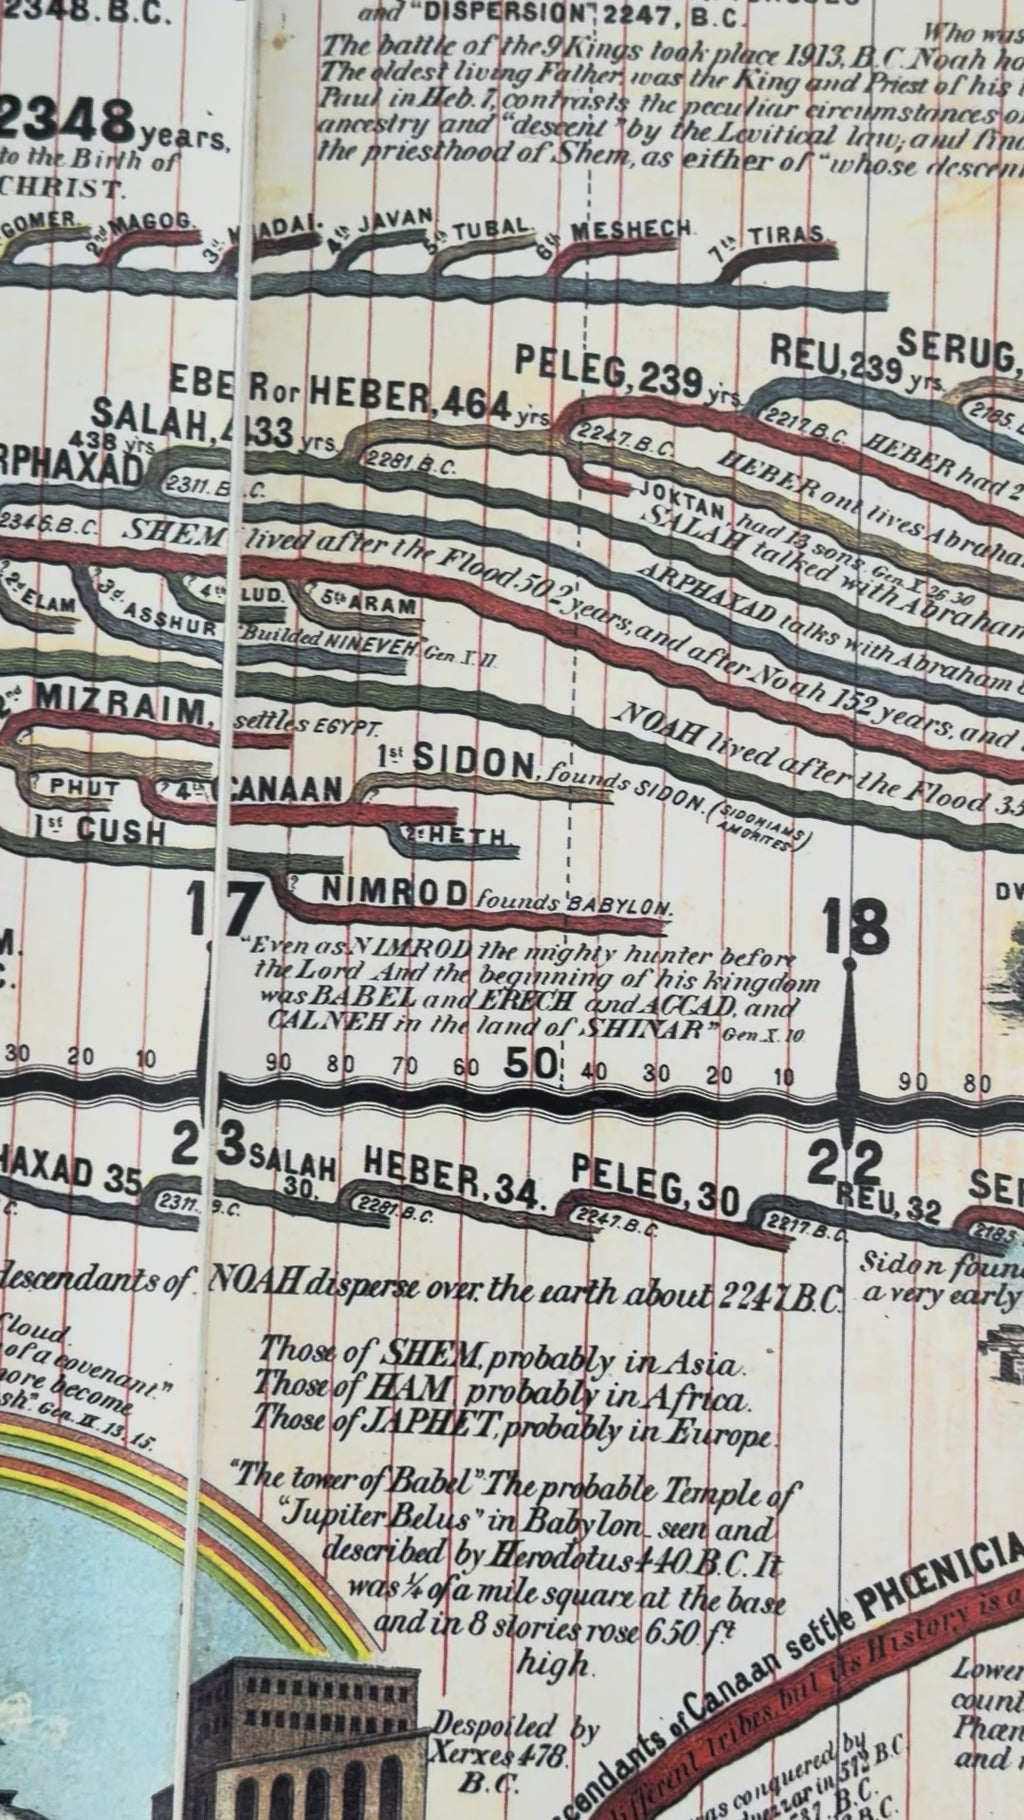 2348.B.C.
and "DISPERSION", 2247, B.C.
Who was
The battle of the 9 Kings took place 1913, B.C. Noah
The oldest living Father, was the King and Priest of his
Paul in Heb. 7, contrasts the peculiar circumstances
ancestry and "descent" by the Levitical law; and
the priesthood of Shem, as either of "whose
2348 years,
to the Birth of
CHRIST.
GOMER.
2nd MAGOG.
3rd MADAI.
4th JAVAN
5th TUBAL
6th MESHECH
7th TIRAS.
PELEG, 239 yrs.
REU, 239 yrs.
SERUG,
EBER or HEBER, 464 yrs
SALAH, 433 yrs.
438 yrs
RPHAXAD
2311. B.C.
2281 B.C.
2247. B.C.
2217 B.C.
2185.
HEBER had 2
HEBER ont lives Abraha
JOKTAN, had 13 sons. Gen X. 26.30
SALAH talked with Abraham
ARPHAXAD talks with Abraham
2346.B.C.
SHEM lived after the Flood. 502 years, and after Noah 152 years, and
2d ELAM
3d. ASSHUR
4th LUD.
5th ARAM
"Builded NINEVEH" Gen. X. 11.
NOAH lived after the Flood 35
2nd MIZRAIM, settles EGYPT.
1st SIDON, founds SIDON. (SIDONIANS AMORITES)
PHUT
? 4th CANAAN
1st CUSH
2d HETH.
NIMROD founds BABYLON.
17
18
"Even as NIMROD the mighty hunter before
the Lord And the beginning of his kingdom
was BABEL and ERECH and ACCAD, and
CALNEH in the land of SHINAR" Gen. X. 10.
30 20 10 90 80 70 60 50 40 30 20 10 90 80
23
22
HAXAD 35
SALAH 30.
HEBER, 34.
PELEG, 30
REU, 32
SER
2311. B.C.
2281. B.C.
2247. B.C.
2217. B.C.
2185
descendants of NOAH disperse over the earth about 2247 B.C.
Sidon foun
a very early
Cloud.
of a covenant."
more become
sh". Gen. IX. 13. 15.
Those of SHEM, probably in Asia.
Those of HAM probably in Africa.
Those of JAPHET, probably in Europe.
"The tower of Babel" The probable Temple of
"Jupiter Belus" in Babylon seen and
described by Herodotus 440. B.C. It
was ¼ of a mile square at the base
and in 8 stories rose 650 ft
high.
Despoiled by
Xerxes 478.
B.C.
scendants of Canaan settle PHŒNICIA
different tribes, but its History, is a
was conquered by
in 572 B.C.
B.C.
B.C.
Lower
count
Phœn
and